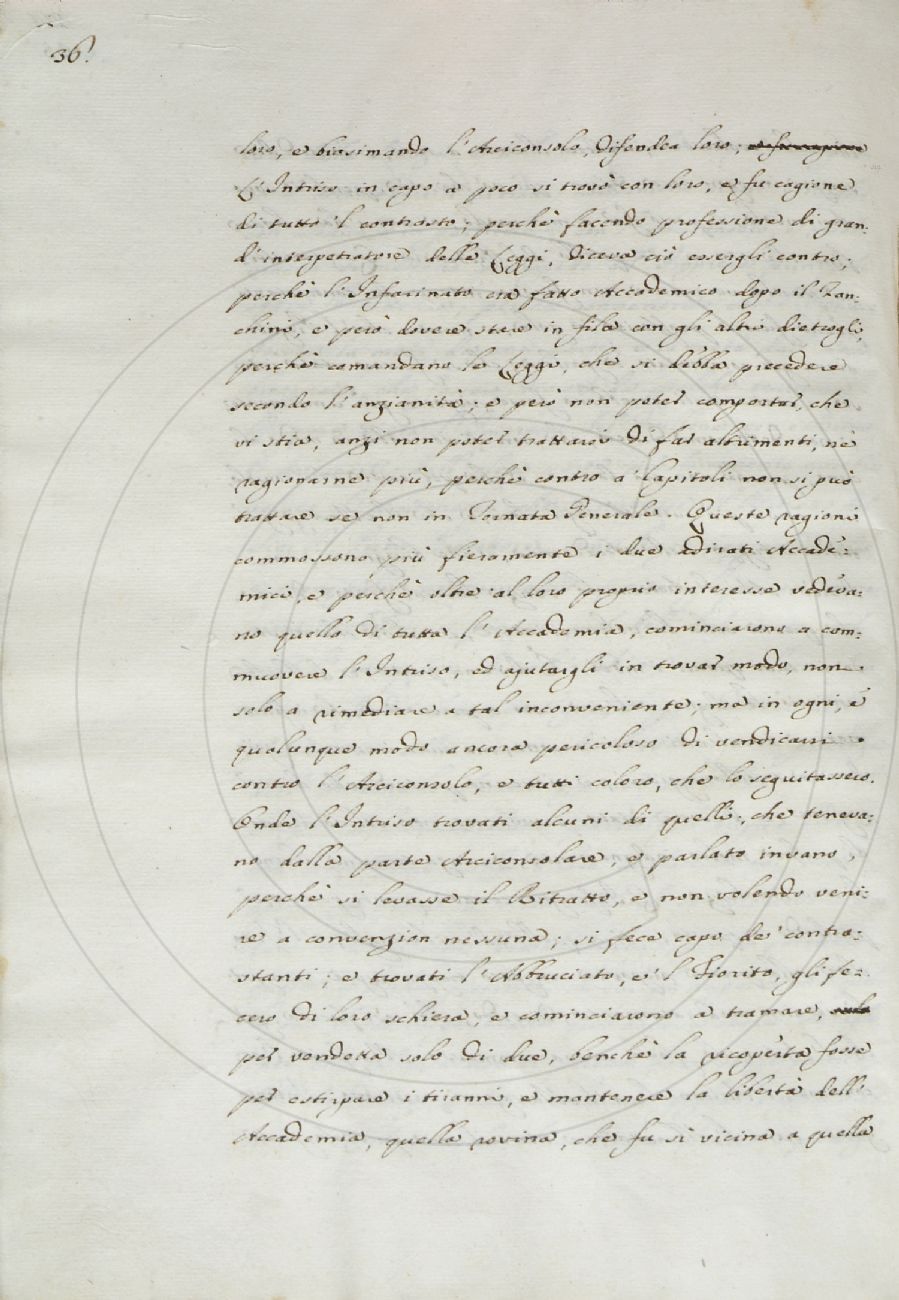 36.
loro, e biasimando l'Arciconsolo, difendea loro;
L'Intriso in capo a poco si trovò con loro, e fu cagione
di tutto 'l contrasto; perchè facendo professione di gran:
d'interpetratore delle Leggi, diceva ciò essergli contro;
perchè l'Infarinato era fatto Accademico dopo il Zan:
chini, e però dovere stare in fila con gli altri dietrogli,
perchè comandano le Leggi, che si debba precedere
secondo l'anzianità; e però non poter comportar, che
vi stia, anzi non poter trattarsi di far altrimenti, nè
ragionarne più, perchè contro a' Capitoli non si può
trattare se non in Tornata Generale. Queste ragioni
commossono più fieramente i due adirati Accade:
mici, e perchè oltre al loro proprio interesse vedeva:
no quello di tutta l'Accademia, cominciarono a com:
muovere l'Intriso, ed ajutargli in trovar modo, non
solo a rimediare a tal inconveniente; ma in ogni, e
qualunque modo ancora pericoloso di vendicarsi
contro l'Arciconsolo, e tutti coloro, che lo seguitassero.
Onde l'Intriso trovati alcuni di quelli, che teneva:
no dalla parte Arciconsolare, e parlato invano,
perchè si levasse il Ritratto, e non volendo veni:
re a convenzion nessuna; si fece capo de' contra:
stanti; e trovati l'Abbruciato, e 'l Fiorito, gli fe:
cero di loro schiera, e cominciarono a tramare,
per vendetta solo di due, benchè la ricoperta fosse
per estirpare i tiranni, e mantenere la libertà dell'
Accademia, quella rovina, che fu sì vicina a quella